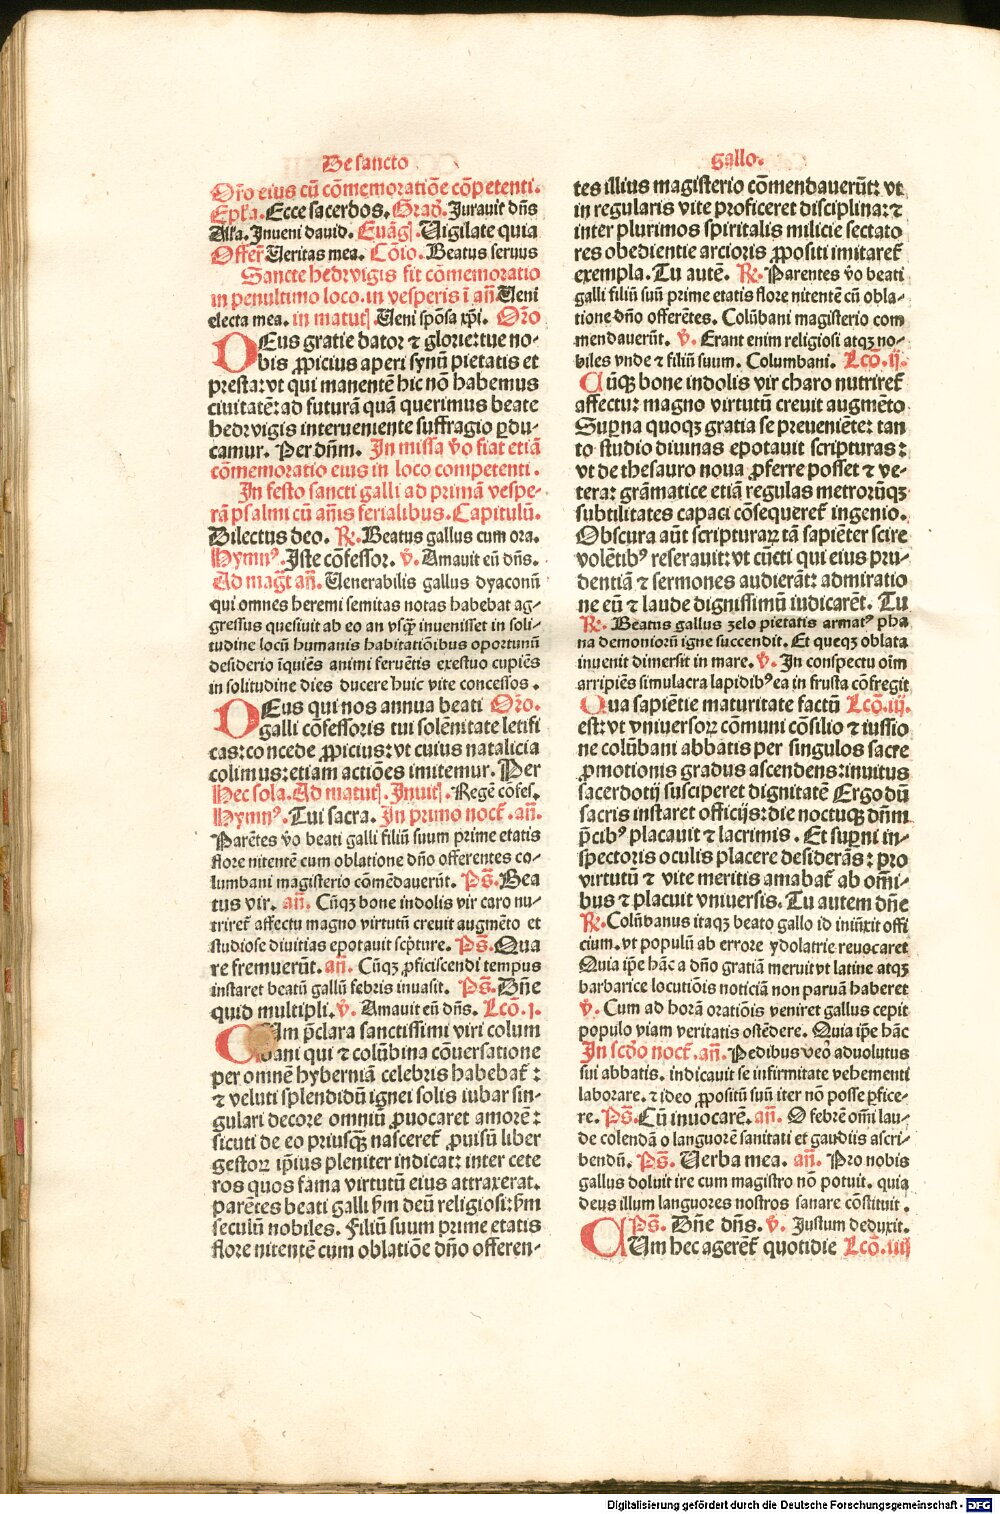 De sancto
Oro eius cū cōmemoratiōe cōpetenti.
Epl'a. Ecce sacerdos. Grad. Jurauit dn̄s
Alla. Inueni dauid. Euāg. Uigilate quia
Offer Ueritas mea. Cōio. Beatus seruus
Sancte hedwigis fit cōmemoratio
in penultimo loco. in vesperis i an̄ Ueni
electa mea. in matut. Ueni spōsa xp̄i. Oro
DEus gratie dator ⁊ glorie: tue no-
bis ꝓpicius aperi synū pietatis et
presta: vt qui manentē hic nō habemus
ciuitatē: ad futurā quā querimus beate
hedwigis interueniente suffragio ꝑdu-
camur. Per dn̄m. In missa v̄o fiat etiā
cōmemoratio eius in loco competenti.
In festo sancti galli ad primā vespe-
rā psalmi cū an̄is ferialibus. Capitulū.
Dilectus deo. ℟. Beatus gallus cum ora.
Hymnꝰ. Iste cōfessor. ℣. Amauit eū dn̄s.
Ad magt̄ an̄. Uenerabilis gallus dyaconū
qui omnes heremi semitas notas habebat ag-
gressus quesiuit ab eo an vsqꝫ inuenisset in soli-
tudine locū humanis habitatiōibus oportunū
desiderio īquiēs animi feruētis exestuo cupiēs
in solitudine dies ducere huic vite concessos.
DEus qui nos annua beati Oro.
galli cōfessoris tui solēnitate letifi
cas: concede ꝓpicius: vt cuius natalicia
colimus: etiam actiōes imitemur. Per
Hec sola. Ad matut. Inuit. Regē cōfes.
Hymnꝰ. Tui sacra. In primo noct̄. an̄.
Parētes v̄o beati galli filiū suum prime etatis
flore nitentē cum oblatione dn̄o offerentes co-
lumbani magisterio cōmēdauerūt. Ps̄. Bea
tus vir. an̄. Cūqꝫ bone indolis vir caro nu-
triret̄ affectu magno virtutū creuit augmēto et
studiose diuitias epotauit scp̄ture. Ps̄. Qua
re fremuerūt. an̄. Cūqꝫ ꝓficiscendi tempus
instaret beatū gallū febris inuasit. Ps̄. Dn̄e
quid multipli. ℣. Amauit eū dn̄s. Lcō. j.
CUm p̄clara sanctissimi viri colum
bani qui ⁊ colūbina cōuersatione
per omnē hyberniā celebris habebat̄:
⁊ veluti splendidū ignei solis iubar sin-
gulari decore omniū ꝓuocaret amorē:
sicuti de eo priusqꝫ nasceret̄ ꝓuisū liber
gestoꝝ ip̄ius pleniter indicat: inter cete
ros quos fama virtutū eius attraxerat.
parētes beati galli ẜm deū religiosi: ẜm
seculū nobiles. Filiū suum prime etatis
flore nitentē cum oblatiōe dn̄o offeren-
gallo.
tes illius magisterio cōmendauerūt: vt
in regularis vite proficeret disciplina: ⁊
inter plurimos spiritalis milicie sectato
res obedientie arcioris ꝓpositi imitaret̄
exempla. Tu autē. ℟. Parentes v̄o beati
galli filiū suū prime etatis flore nitentē cū obla-
tione dn̄o offerētes. Colūbani magisterio com
mendauerūt. ℣. Erant enim religiosi atqꝫ no-
biles vnde ⁊ filiū suum. Columbani. Lcō. ij.
CUqꝫ bone indolis vir charo nutriret̄
affectu: magno virtutū creuit augmēto
Suꝑna quoqꝫ gratia se preueniēte: tan
to studio diuinas epotauit scripturas:
vt de thesauro noua ꝓferre posset ⁊ ve-
tera: grāmatice etiā regulas metrorūqꝫ
subtilitates capaci cōsequeret̄ ingenio.
Obscura aūt scripturaꝝ tā sapiēter scire
volētibꝰ reserauit: vt cūcti qui eius pru-
dentiā ⁊ sermones audierāt: admiratio
ne eū ⁊ laude dignissimū iudicarēt. Tu
℟. Beatus gallus zelo pietatis armatꝰ pha
na demoniorū igne succendit. Et queqꝫ oblata
inuenit dimersit in mare. ℣. In conspectu oīm
arripiēs simulacra lapidibꝰ ea in frusta cōfregit
Qua sapiētie maturitate factū Lcō. iij.
est: vt vniuersoꝝ cōmuni cōsilio ⁊ iussio
ne colūbani abbatis per singulos sacre
ꝓmotionis gradus ascendens: inuitus
sacerdotij susciperet dignitatē Ergo dū
sacris instaret officijs: die noctuqꝫ dn̄m
p̄cibꝰ placauit ⁊ lacrimis. Et suꝑni in-
spectoris oculis placere desiderās: pro
virtutū ⁊ vite meritis amabat̄ ab om̄i-
bus ⁊ placuit vniuersis. Tu autem dn̄e
℟. Colūbanus itaqꝫ beato gallo id iniūxit offi
cium. vt populū ab errore ydolatrie reuocaret
Quia ip̄e hāc a dn̄o gratiā meruit vt latine atqꝫ
barbarice locutiōis noticiā non paruā haberet
℣. Cum ad horā oratiōis veniret gallus cepit
populo viam veritatis ostēdere. Quia ip̄e hāc
In scd̄o noct̄. an̄. Pedibus veō aduolutus
sui abbatis. indicauit se infirmitate vehementi
laborare. ⁊ ideo ꝓpositū suū iter nō posse ꝑfice-
re. Ps̄. Cū inuocarē. an̄. O febrē om̄i lau-
de colendā o languorē sanitati et gaudiis ascri-
bendū. Ps̄. Uerba mea. an̄. Pro nobis
gallus doluit ire cum magistro nō potuit. quia
deus illum languores nostros sanare cōstituit.
Ps̄. Dn̄e dn̄s. ℣. Justum deduxit.
CUm hec agerēt̄ quotidie Lcō. iiij
Digitalisierung gefördert durch die Deutsche Forschungsgemeinschaft - DFG